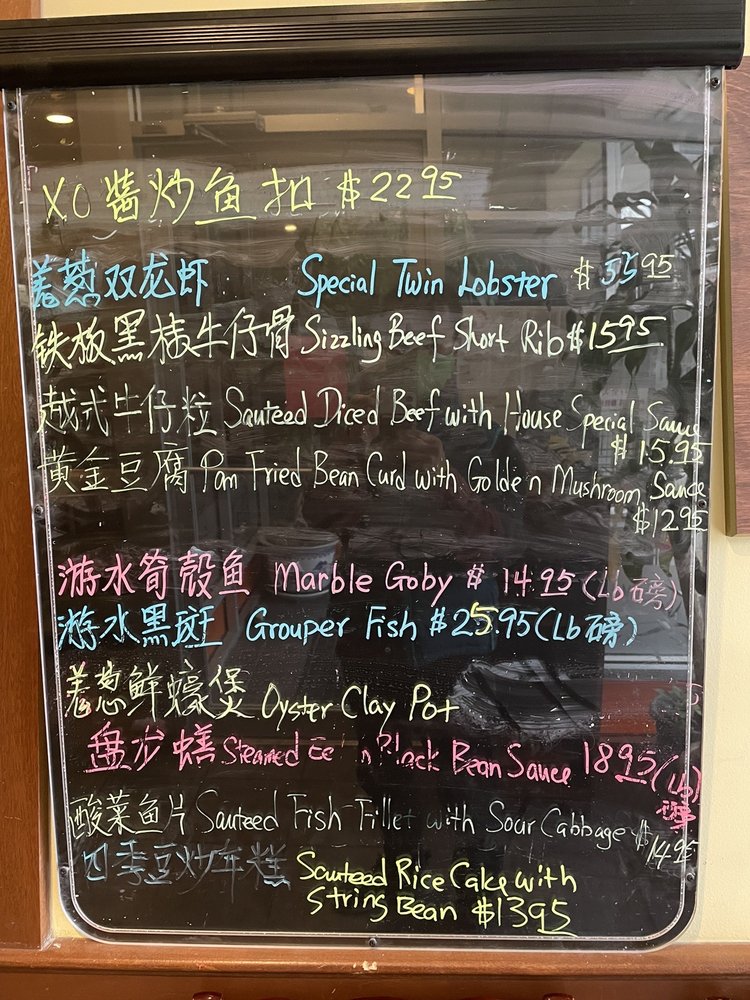 XO 醬炒鱼扣 $22.95
姜葱双龙虾 Special Twin Lobster $ 35.95
铁板黑椒牛仔骨 Sizzling Beef Short Rib $15.95
越式牛仔粒 Sauteed Diced Beef with House Special Sauce
$15.95
黃金豆腐 Pan Fried Bean Curd with Golden Mushroom Sauce
$12.95
游水筍殼鱼 Marble Goby $ 14.95 (Lb 磅)
游水黑斑 Grouper Fish $25.95 (Lb 磅)
姜葱鮮蠔煲 Oyster Clay Pot
盘龙鳝 Steamed Eel in Black Bean Sauce 18.95 (Lb)
磅
酸菜鱼片 Sauteed Fish Fillet with Sour Cabbage $14.95
四季豆炒年糕 Sauteed Rice Cake with
String Bean $13.95